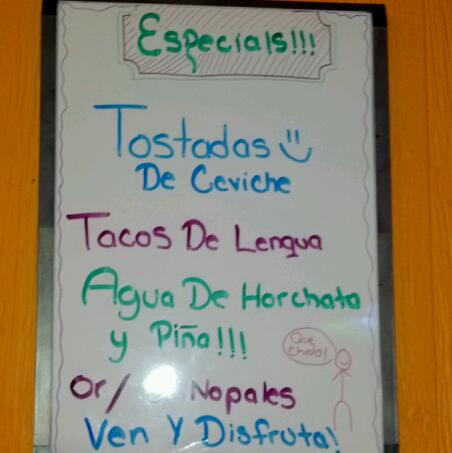 Especials!!!
Tostadas
De Ceviche
Tacos De Lengua
Agua De Horchata
y Piña!!!
Que
Chido!
Or/ Nopales
Ven Y Disfruta!